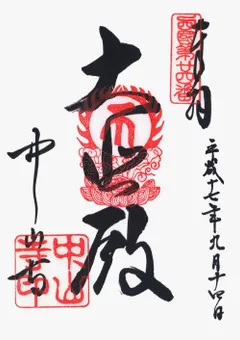 奉拝
西國第廿四番
平成十七年九月十四日
大悲殿
中山寺
中山寺